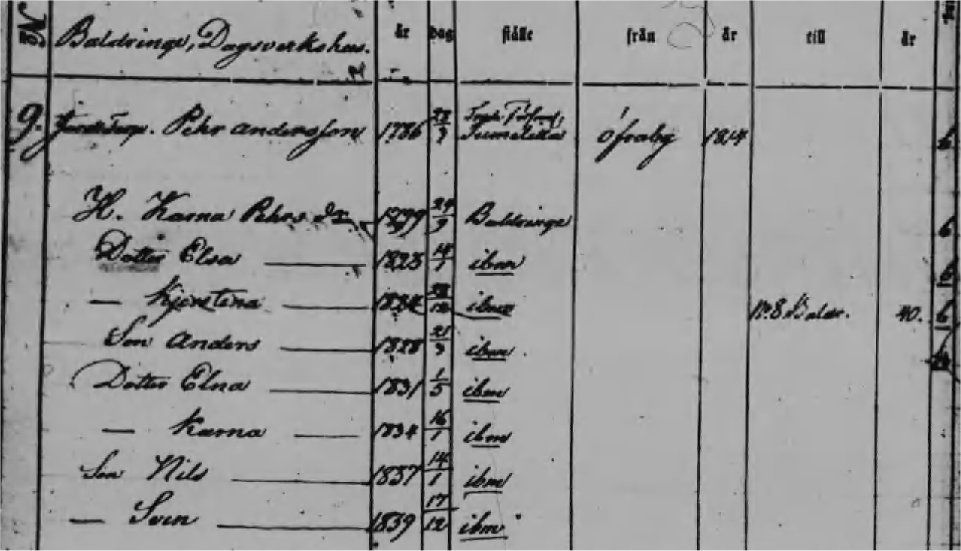 No Baldringe, Dagsverkshus. år dag ställe från år till år
9. Pehr Andersson 1786 Öfraby 1814 6
H. Karna Pehrs dr. 1799 24/9 Baldringe 6
Dotter Elsa 1823 ibm 6
— Kjerstina ibm No 8 Baldr. 40. 6
Son Anders 1828 21/3 ibm
Dotter Elna 1831 1/5 ibm
— Karna 1834 16/1 ibm
Son Nils 1837 14/1 ibm
— Sven 1839 17/12 ibm